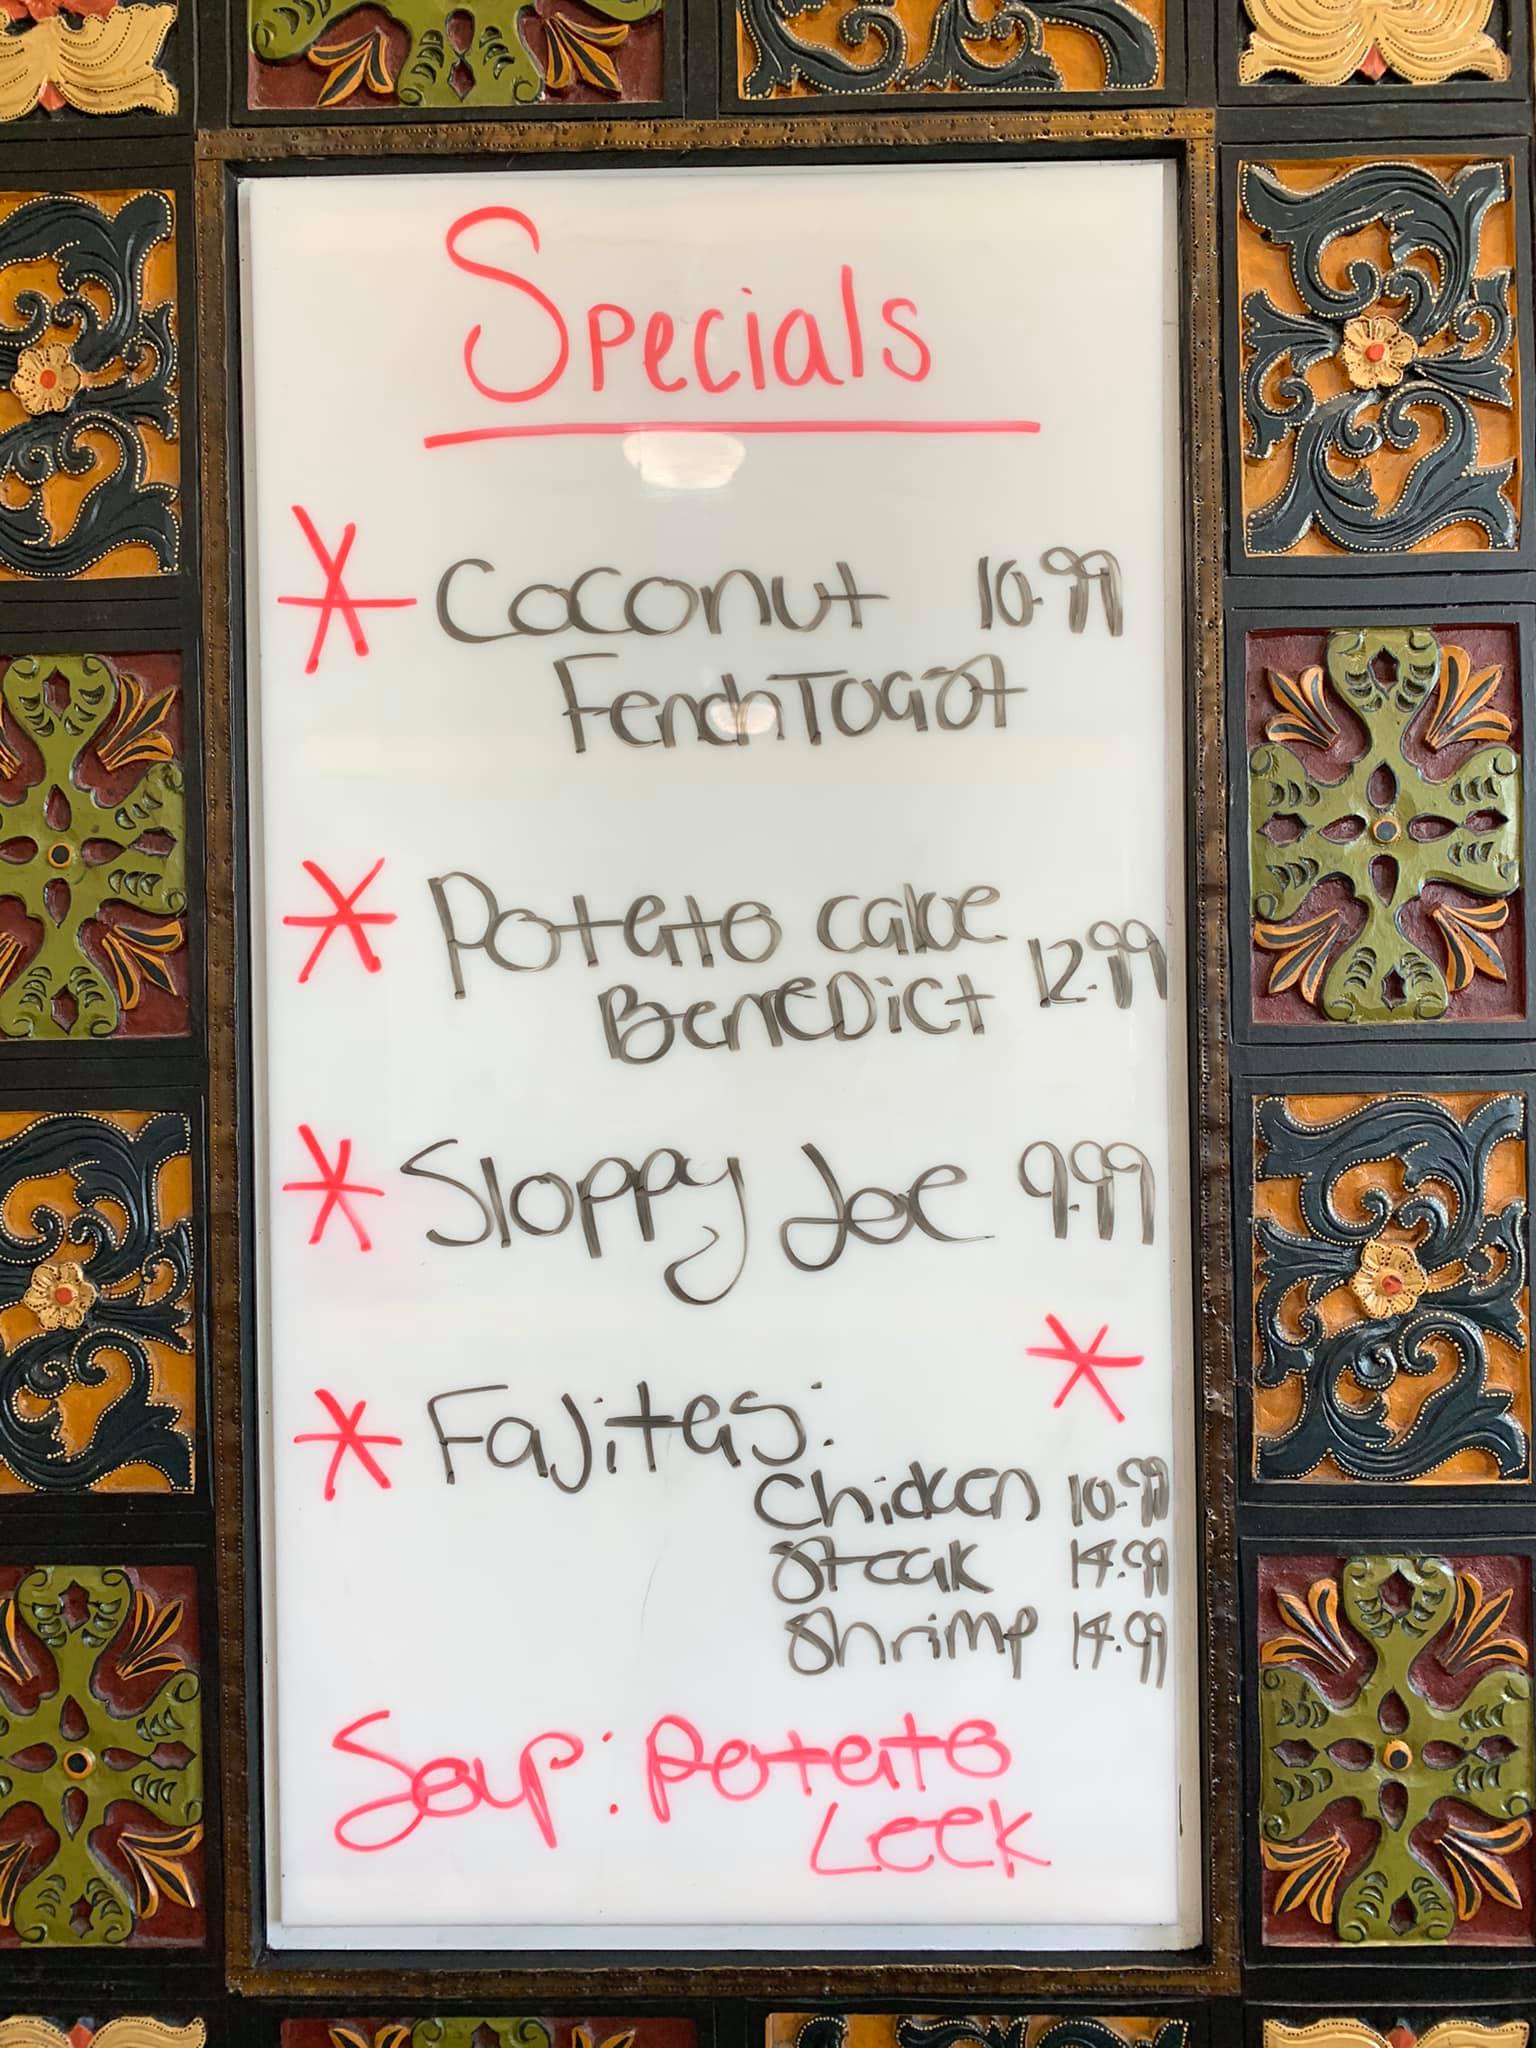 Specials
Coconut 10.99
Fench Toast
Potato cake
Benedict 12.99
Sloppy Joe 9.99
Fajitas:
Chicken 10.99
Steak 14.99
Shrimp 14.99
Soup: Potato
Leek